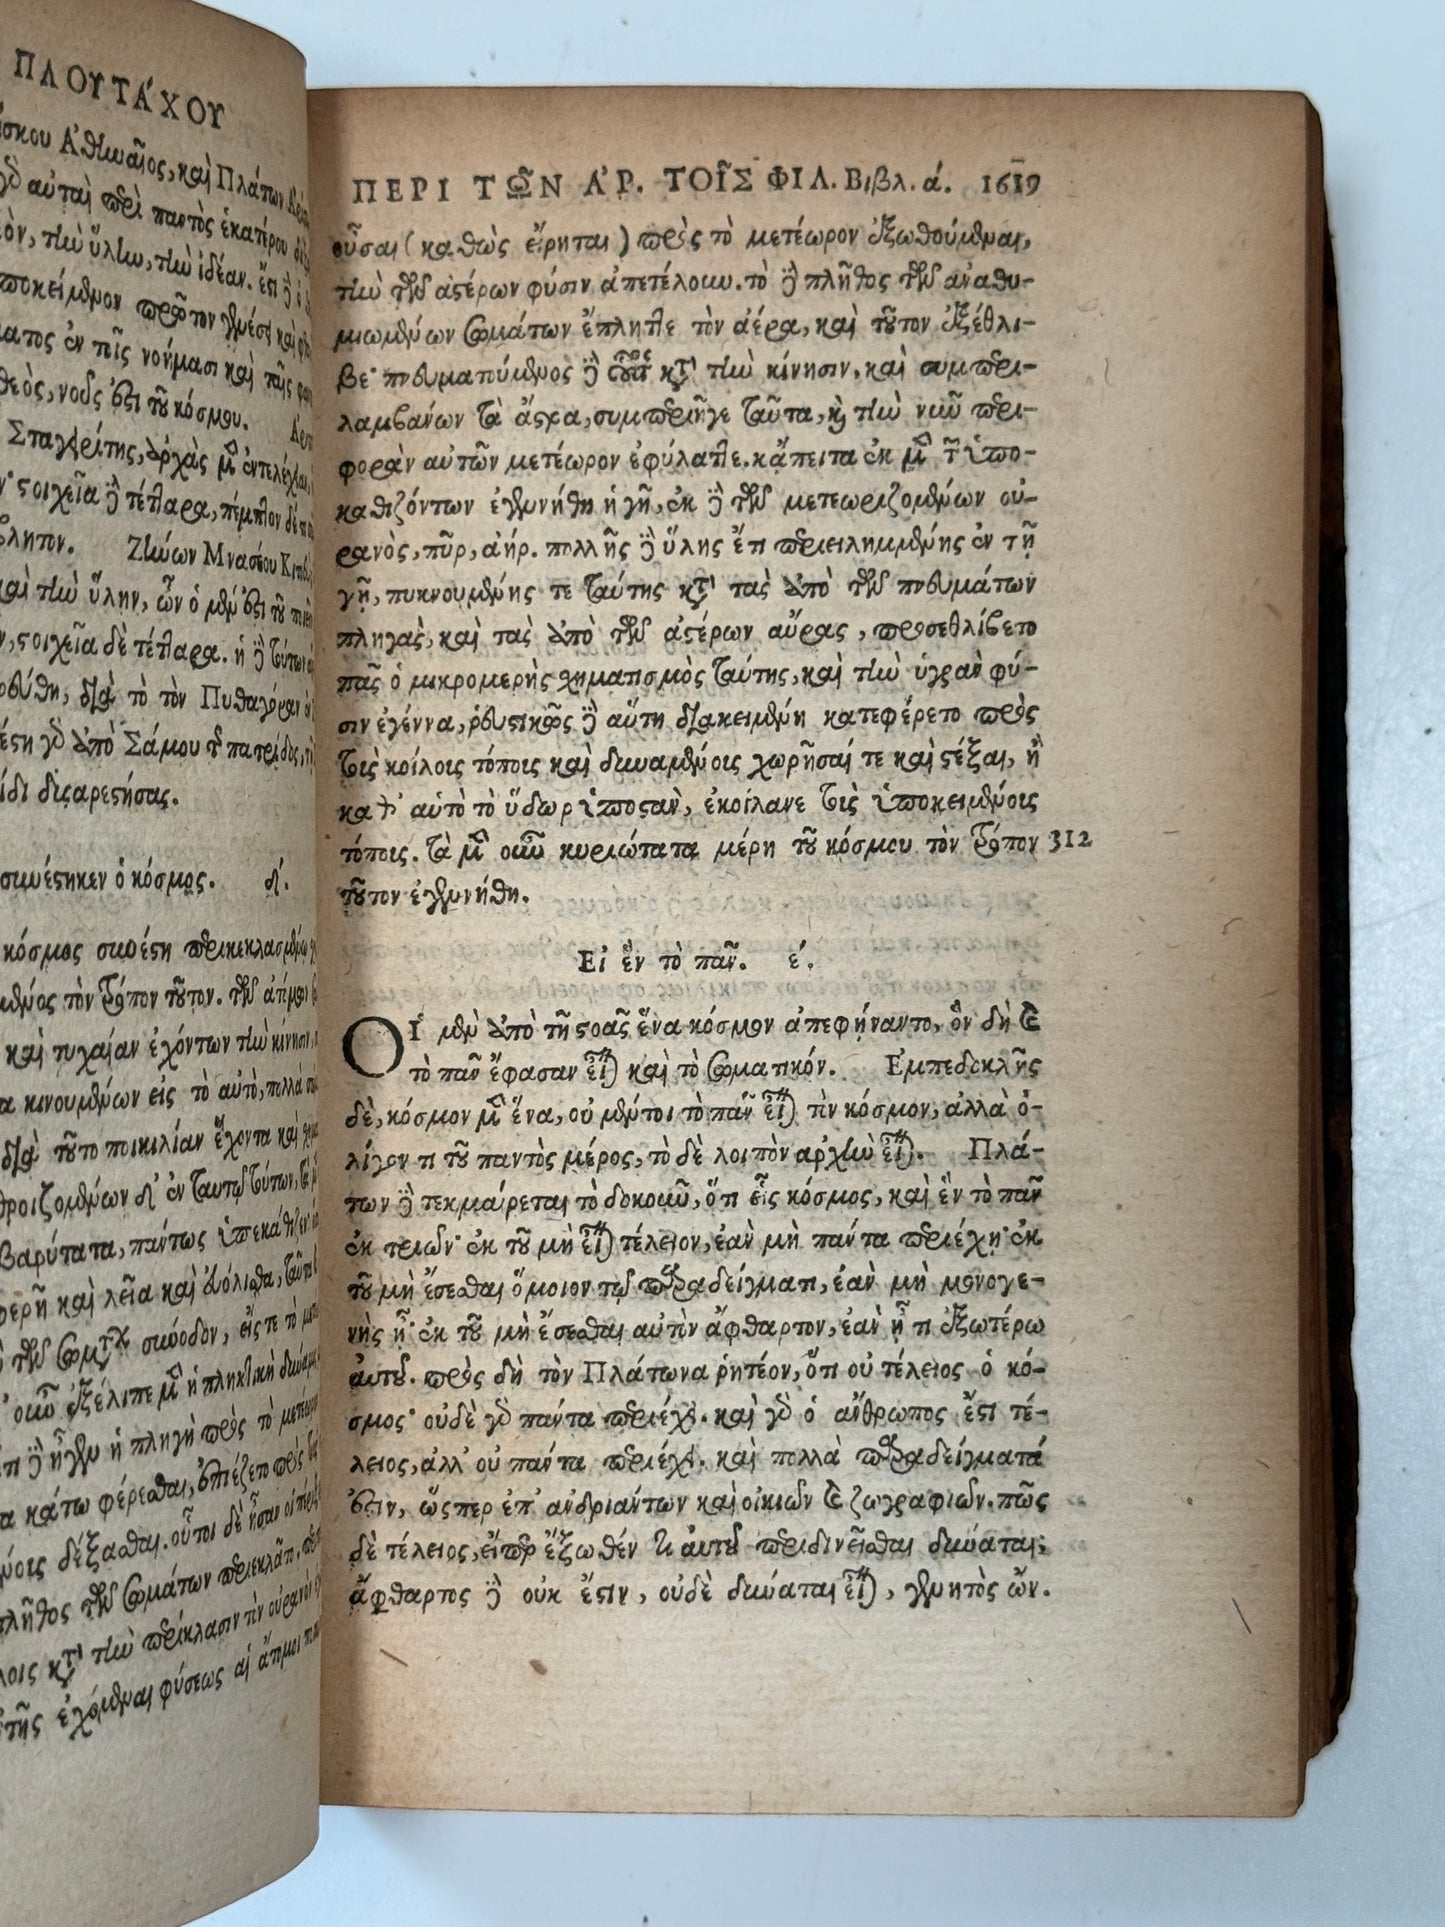 ΠΛΟΥΤΑΧΟΥ
Ἀθηναῖος, καὶ Πλάτων
αὐταὶ περὶ παντὸς ἑκατέρου
τὴν ὕλην, τὴν ἰδέαν. ἔστι δὲ
πρῶτον γενέσει καὶ
ἐν τοῖς νοήμασι καὶ ταῖς
θεὸς, νοῦς ἐστι τοῦ κόσμου.
Σταγειρίτης, ἀρχὰς μὲν ἐντελέχειαν,
στοιχεῖα δὲ τέτταρα, πέμπτον δέ τι
Ζήνων Μνασέου
καὶ τὴν ὕλην, ὧν ὁ μέν ἐστι τοῦ
στοιχεῖα δὲ τέτταρα. ἡ δὲ τούτων
διὰ τὸ τὸν Πυθαγόραν
γὰρ ἀπὸ Σάμου τῆς πατρίδος,
δυσαρεστήσας.
συνέστηκεν ὁ κόσμος. δ΄.
κόσμος συνέστη περικεκλασμένῳ
τὸν τρόπον τοῦτον. τῶν ἀτόμων
καὶ τυχαίαν ἐχόντων τὴν κίνησιν,
κινουμένων εἰς τὸ αὐτὸ, πολλὰ
διὰ τοῦτο ποικιλίαν ἔχοντα καὶ
ἀθροιζομένων δ' ἐν ταυτῷ τούτων,
βαρύτατα, πάντως ὑπεκάθιζεν
καὶ λεῖα καὶ εὐόλισθα, ταῦτα
τῶν σωμάτων σύνοδον, εἴς τε τὸ
οὖν ἐξέλιπε μὲν ἡ πληκτικὴ δύναμις
δὲ ἦγεν ἡ πληγὴ πρὸς τὸ μετέωρον
κάτω φέρεσθαι, ἐπιέζετο πρὸς
δέξασθαι. οὗτοι δὲ ἦσαν οἱ
πλῆθος τῶν σωμάτων περιεκλᾶτο,
κατὰ τὴν περίκλασιν τὸν οὐρανὸν
ἐχόμεναι φύσεως αἱ ἄτομοι
ΠΕΡΙ ΤΩ͂Ν ἈΡ. ΤΟΙ͂Σ ΦΙΛ. Βιβλ. ά. 1619
οὖσαι (καθὼς εἴρηται) πρὸς τὸ μετέωρον ἐξωθούμεναι,
τὴν τῶν ἀστέρων φύσιν ἀπετέλουν. τὸ δὲ πλῆθος τῶν ἀναθυ-
μιωμένων σωμάτων ἔπληττε τὸν ἀέρα, καὶ τοῦτον ἐξέθλι-
βε· πνευματούμενος δὲ οὗτος κατὰ τὴν κίνησιν, καὶ συμπερι-
λαμβανων τὰ ἄστρα, συμπεριῆγε ταῦτα, καὶ τὴν νῦν περι-
φορὰν αὐτῶν μετέωρον ἐφύλαττε. κἄπειτα ἐκ μὲν τῶν ὑπο-
καθιζόντων ἐγενήθη ἡ γῆ, ἐκ δὲ τῶν μετεωριζομένων οὐ-
ρανὸς, πῦρ, ἀήρ. πολλῆς δὲ ὕλης ἔτι περιειλημμένης ἐν τῇ
γῇ, πυκνουμένης τε ταύτης κατὰ τὰς ἀπὸ τῶν πνευμάτων
πληγὰς, καὶ τὰς ἀπὸ τῶν ἀστέρων αὔρας, προσεθλίβετο
πᾶς ὁ μικρομερὴς σχηματισμὸς ταύτης, καὶ τὴν ὑγρὰν φύ-
σιν ἐγέννα, ῥευστικῶς δὲ αὕτη διακειμένη κατεφέρετο πρὸς
τοὺς κοίλους τόπους καὶ δυναμένους χωρῆσαί τε καὶ στέξαι, ἢ
καθ' αὑτὸ τὸ ὕδωρ ὑποστὰν, ἐκοίλανε τοὺς ὑποκειμένους
τόπους. τὰ μὲν οὖν κυριώτατα μέρη τοῦ κόσμου τὸν τρόπον 312
τοῦτον ἐγενήθη.
Εἰ ἓν τὸ πᾶν. έ.
ΟΙ῾ μὲν ἀπὸ τῆς στοᾶς ἕνα κόσμον ἀπεφήναντο, ὃν δὴ καὶ
τὸ πᾶν ἔφασαν εἶναι καὶ τὸ σωματικόν. Ἐμπεδοκλῆς
δὲ, κόσμον μὲν ἕνα, οὐ μέντοι τὸ πᾶν εἶναι τὸν κόσμον, ἀλλὰ ὀ-
λίγον τι τοῦ παντὸς μέρος, τὸ δὲ λοιπὸν ἀργὴν εἶναι. Πλά-
των δὲ τεκμαίρεται τὸ δοκοῦν, ὅτι εἷς κόσμος, καὶ ἓν τὸ πᾶν
ἐκ τριῶν· ἐκ τοῦ μὴ εἶναι τέλειον, ἐὰν μὴ πάντα περιέχῃ· ἐκ
τοῦ μὴ ἔσεσθαι ὅμοιον τῷ παραδείγματι, ἐὰν μὴ μονογε-
νὴς ᾖ· ἐκ τοῦ μὴ ἔσεσθαι αὐτὸν ἄφθαρτον, ἐὰν ᾖ τι ἐξωτέρω
αὐτοῦ. πρὸς δὴ τὸν Πλάτωνα ῥητέον, ὅτι οὐ τέλειος ὁ κό-
σμος· οὐδὲ γὰρ πάντα περιέχει. καὶ γὰρ ὁ ἄνθρωπος ἔστι τέ-
λειος, ἀλλ' οὐ πάντα περιέχει. καὶ πολλὰ παραδείγματά
ἐστιν, ὥσπερ ἐπ' ἀνδριάντων καὶ οἰκιῶν καὶ ζωγραφιῶν. πῶς
δὲ τέλειος, εἴπερ ἔξωθέν τι αὐτοῦ περιδινεῖσθαι δύναται;
ἄφθαρτος δὲ οὐκ ἔστιν, οὐδὲ δύναται εἶναι, γενητὸς ὤν.